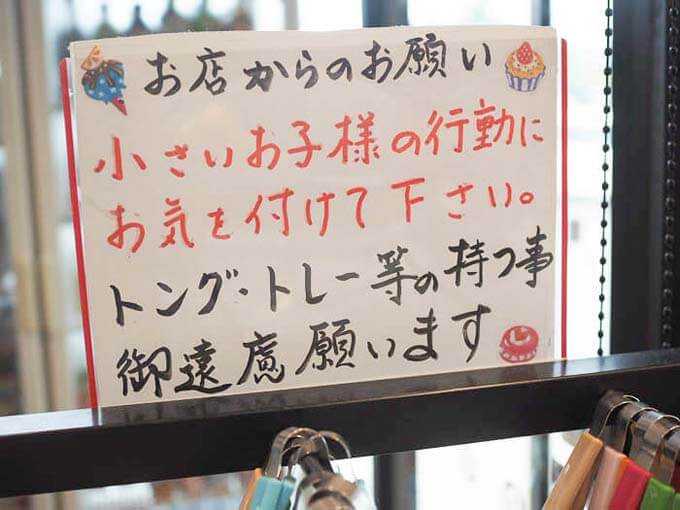 お店からのお願い
小さいお子様の行動に
お気を付けて下さい。
トング・トレー等の持つ事
御遠慮願います